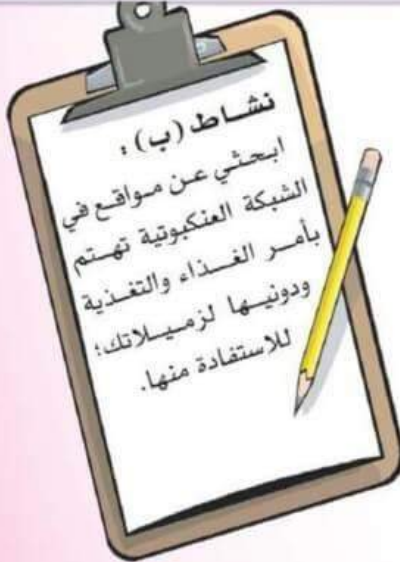 نشـاط (ب) :
ابحثي عن مواقع في
الشبكة العنكبوتية تهتم
بأمر الغذاء والتغذية
ودونيها لزميلاتك؛
للاستفادة منها.